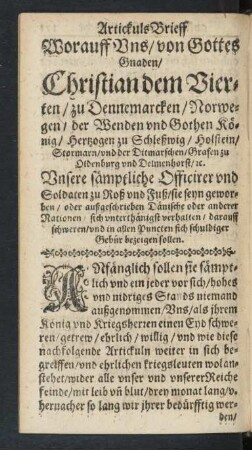 Artickuls Brieff
Worauff Vns/ von Gottes
Gnaden/
Christian dem Vier-
ten/ zu Dennemarcken/ Norwe-
gen/ der Wenden vnd Gothen Kö-
nig/ Hertzogen zu Schleßwig/ Holstein/
Stormarn/ vnd der Ditmarschen/ Grafen zu
Oldenburg vnd Delmenhorst/ ꝛc.
Vnsere sämptliche Officirer vnd
Soldaten zu Roß vnd Fuß/ sie seyn gewor-
ben/ oder außgeschrieben Dänische oder anderer
Nationen/ sich vnterthänigst verhalten/ darauff
schweren/ vnd in allen Puncten sich schuldiger
Gebür bezeigen sollen.
ANfänglich sollen sie sämpt-
lich vnd ein jeder vor sich/ hohes
vnd nidriges Stands niemand
außgenommen/ Vns/ als jhrem
König vnd Kriegsherren einen Eyd schwe-
ren/ getrew/ ehrlich/ willig/ vnd wie diese
nachfolgende Artickuln weiter in sich be-
greiffen/ vnd ehrlichen kriegsleuten wol an-
stehet/ wider alle vnser vnd vnserer Reiche
feinde/ mit leib vñ blut/ drey monat lang/ v-
hernacher so lang wir jhrer bedürfftig wer-
den/